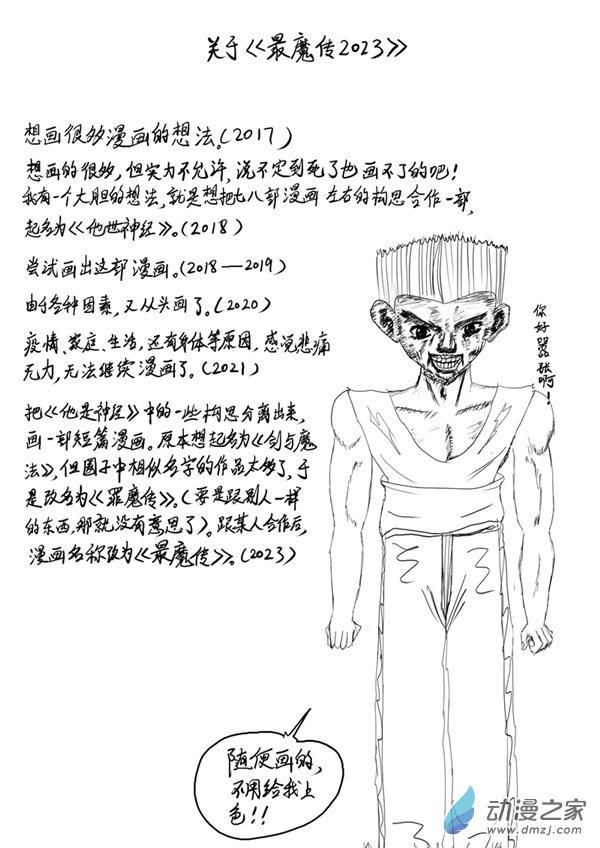 关于《最魔传2023》
想画很多漫画的想法。(2017)
想画的很多,但实力不允许,说不定到死了也画不了的吧!
我有一个大胆的想法,就是想把七八部漫画左右的构思合作一部,
起名为《他世神经》。(2018)
尝试画出这部漫画。(2018—2019)
由于各种因素,又从头画了。(2020)
疫情、家庭、生活,还有身体等原因,感觉悲痛
无力,无法继续漫画了。(2021)
把《他是神经》中的一些构思分离出来,
画一部短篇漫画。原本想起名为《剑与魔
法》,但圈子中相似名字的作品太多了,于
是改名为《罪魔传》。(要是跟别人一样
的东西,那就没有意思了)。跟某人合作后,
漫画名称改为《最魔传》。(2023)
你好嚣张啊!
随便画的,
不用给我上
色!!
动漫之家
www.dmzj.com